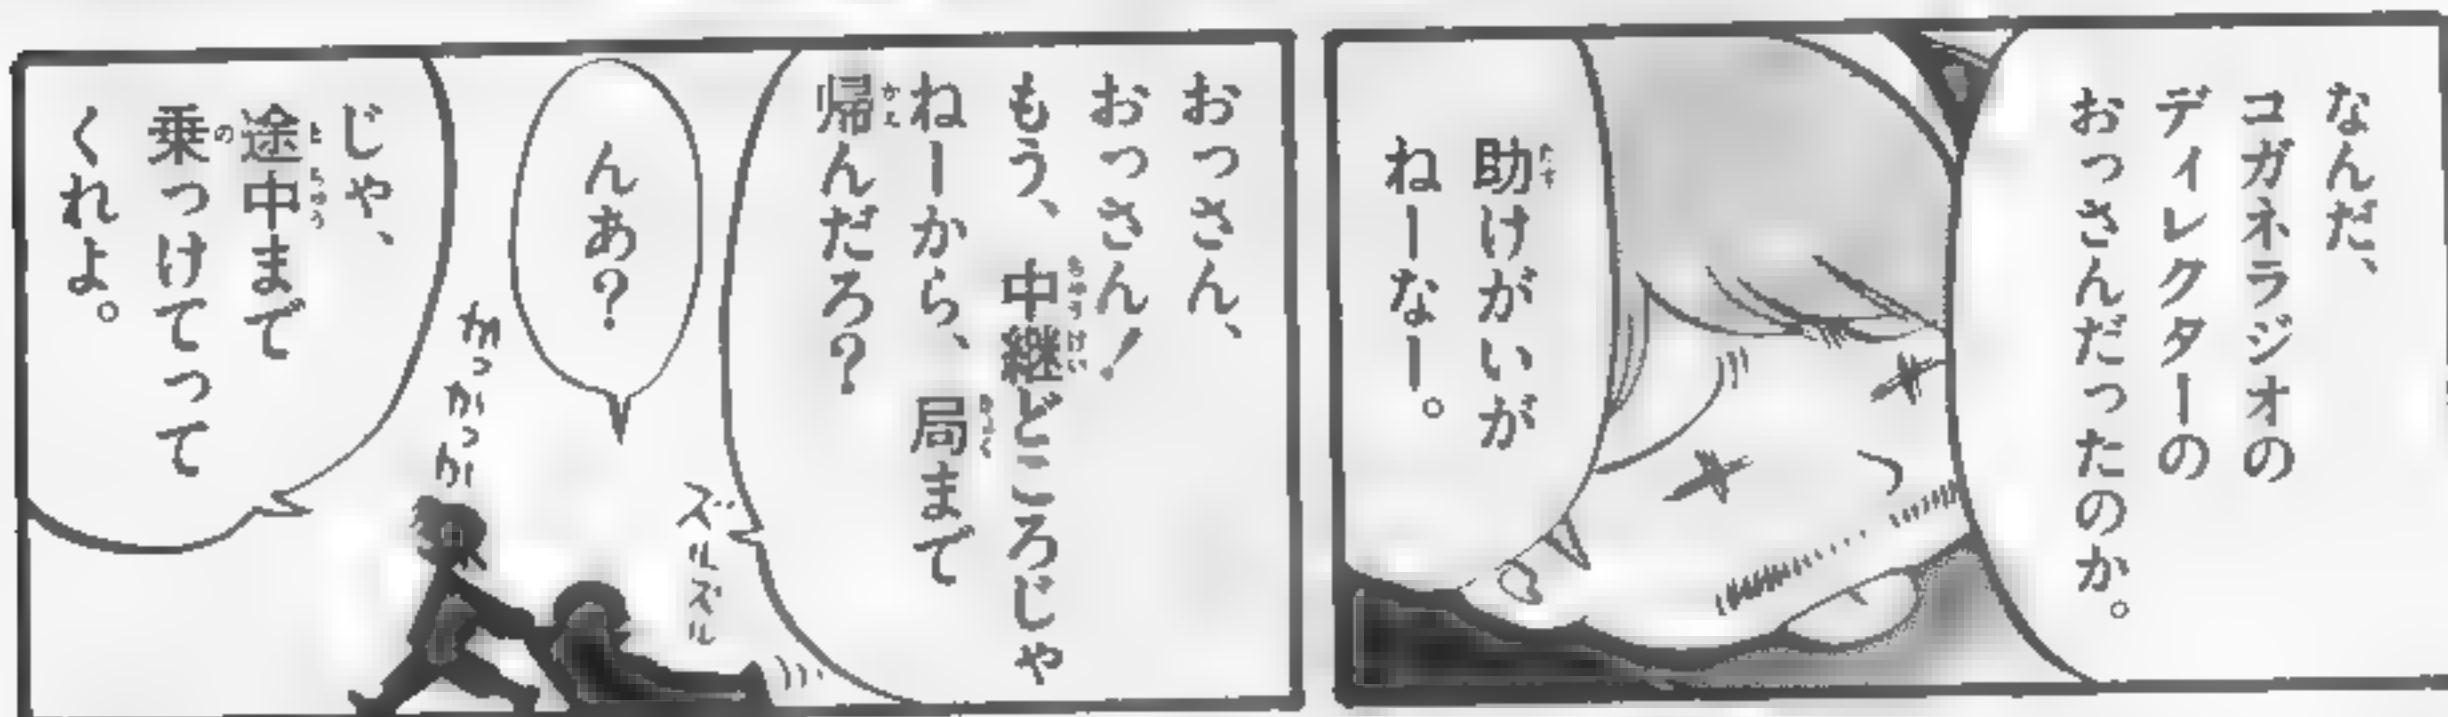 なんだ、
コガネラジオの
ディレクターの
おっさんだったのか。
助けがいが
ねーなー。
おっさん、
おっさん!
もう、中継どころじゃ
ねーから、局まで
帰んだろ?
ズルズル
んあ?
じゃ、
途中まで
乗っけてって
くれよ。